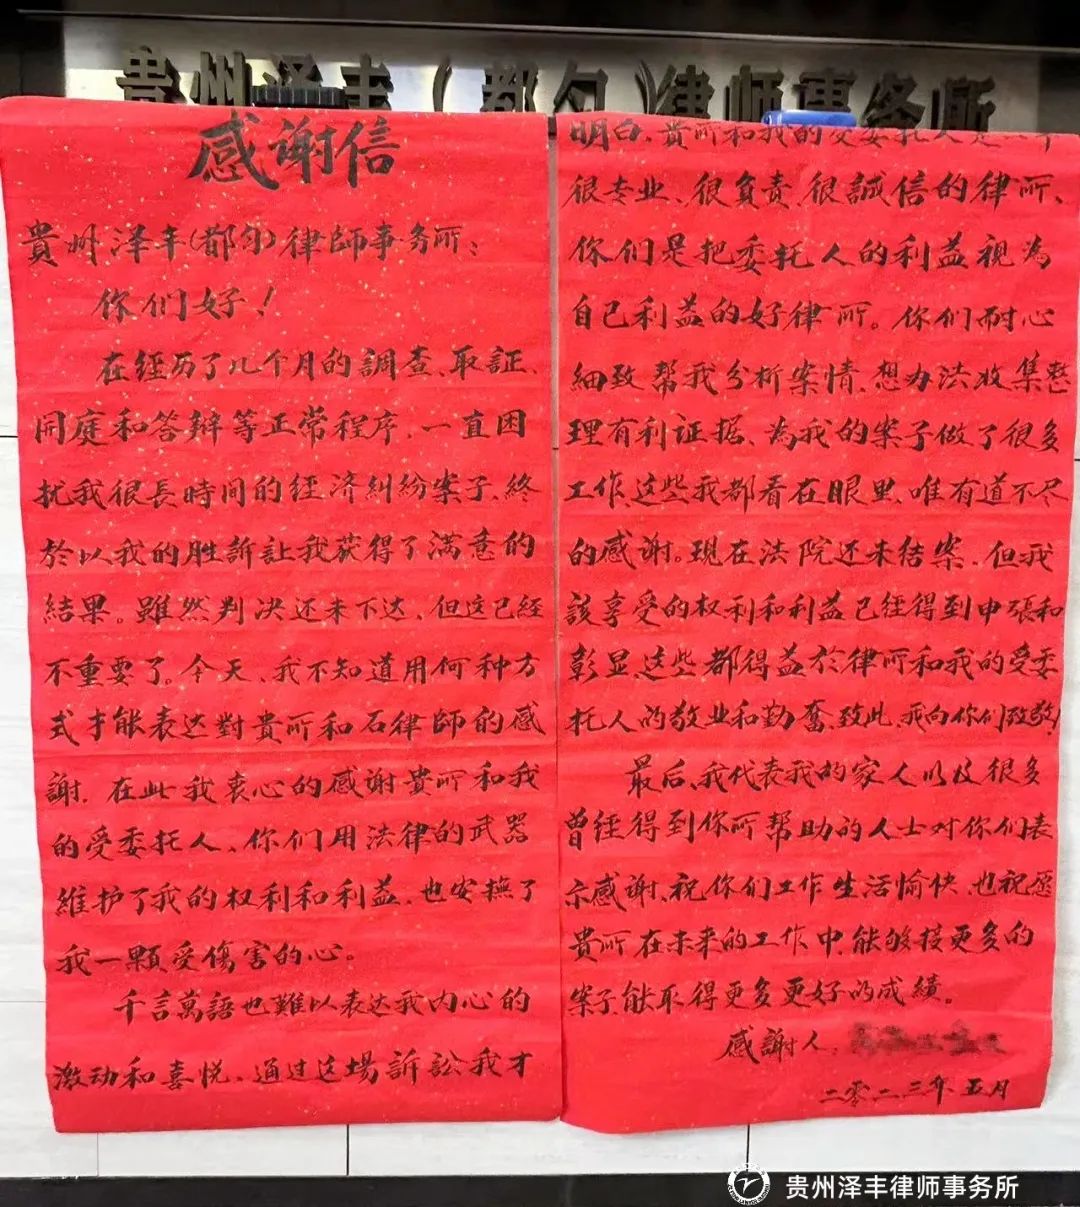 贵州泽丰(都匀)律师事务所
感謝信
貴州泽丰(都匀)律師事务所：
你们好！
在经历了几个月的調查、取証、
開庭和答辩等正常程序，一直困
扰我很長時间的经济糾紛案子，終
於以我的胜訴让我获得了满意的
結果。雖然判决还未下达，但这已经
不重要了。今天，我不知道用何种方
式才能表达對貴所和石律師的感
謝，在此我衷心的感谢貴所和我
的受委托人，你们用法律的武器
維护了我的权利和利益，也安撫了
我一顆受傷害的心。
千言萬語也難以表达我内心的
激动和喜悦，通过这場訴訟我才
明白，貴所和我的受委托人是一个
很专业、很負责、很誠信的律所、
你们是把委托人的利益視為
自己利益的好律所。你们耐心
細致帮我分析案情，想办法收集整
理有利证据、為我的案子做了很多
工作，这些我都看在眼里，唯有道不尽
的感谢。现在法院还未结案，但我
該享受的权利和利益已经得到申張和
彰显，这些都得益於律所和我的受委
托人的敬业和勤奮，致此，我向你们致敬！
最后，我代表我的家人以及很多
曾经得到你所帮助的人士对你们表
示感谢，祝你们工作生活愉快，也祝愿
貴所在未来的工作中，能够接更多的
案子，能取得更多更好的成績。
感謝人：
二零二三年五月
贵州泽丰律师事务所